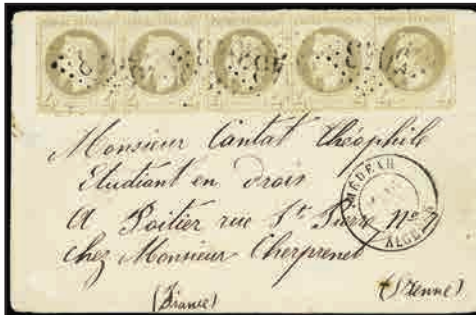 Monsieur Cantat Théophile
Etudiant en droit
A Poitier rue St Pierre No 7
chez Monsieur Cherprenet
(France)
(Vienne)
MÉDÉAH
ALGÉRIE